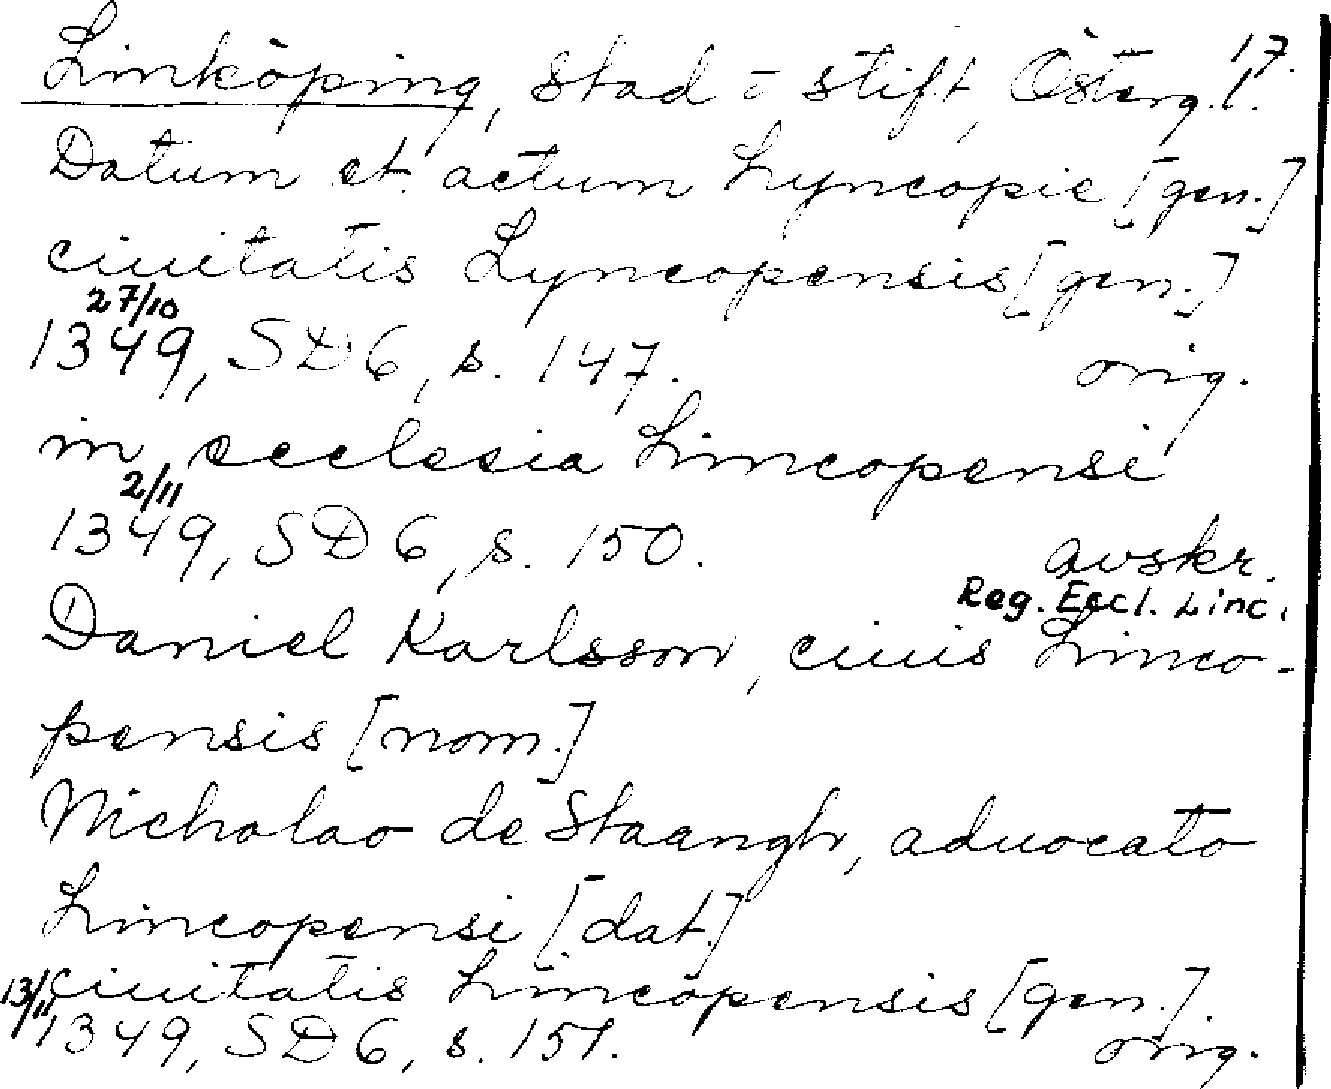 17.
Linköping, stad o stift, Österg. l.
Datum et actum Lyncopie [gen.]
ciuitatis Lyncopensis [gen.]
27/10
1349, SD 6, s. 147. orig.
in ecclesia Lincopensi
2/11
1349, SD 6, s. 150. avskr.
Reg. Eccl. Linc.
Daniel Karlsson, ciuis Linco-
pensis [nom.]
Nicholao de Staangh, aduocato
Lincopensi [dat.]
ciuitatis Lincopensis [gen.].
13/11
1349, SD 6, s. 151. orig.